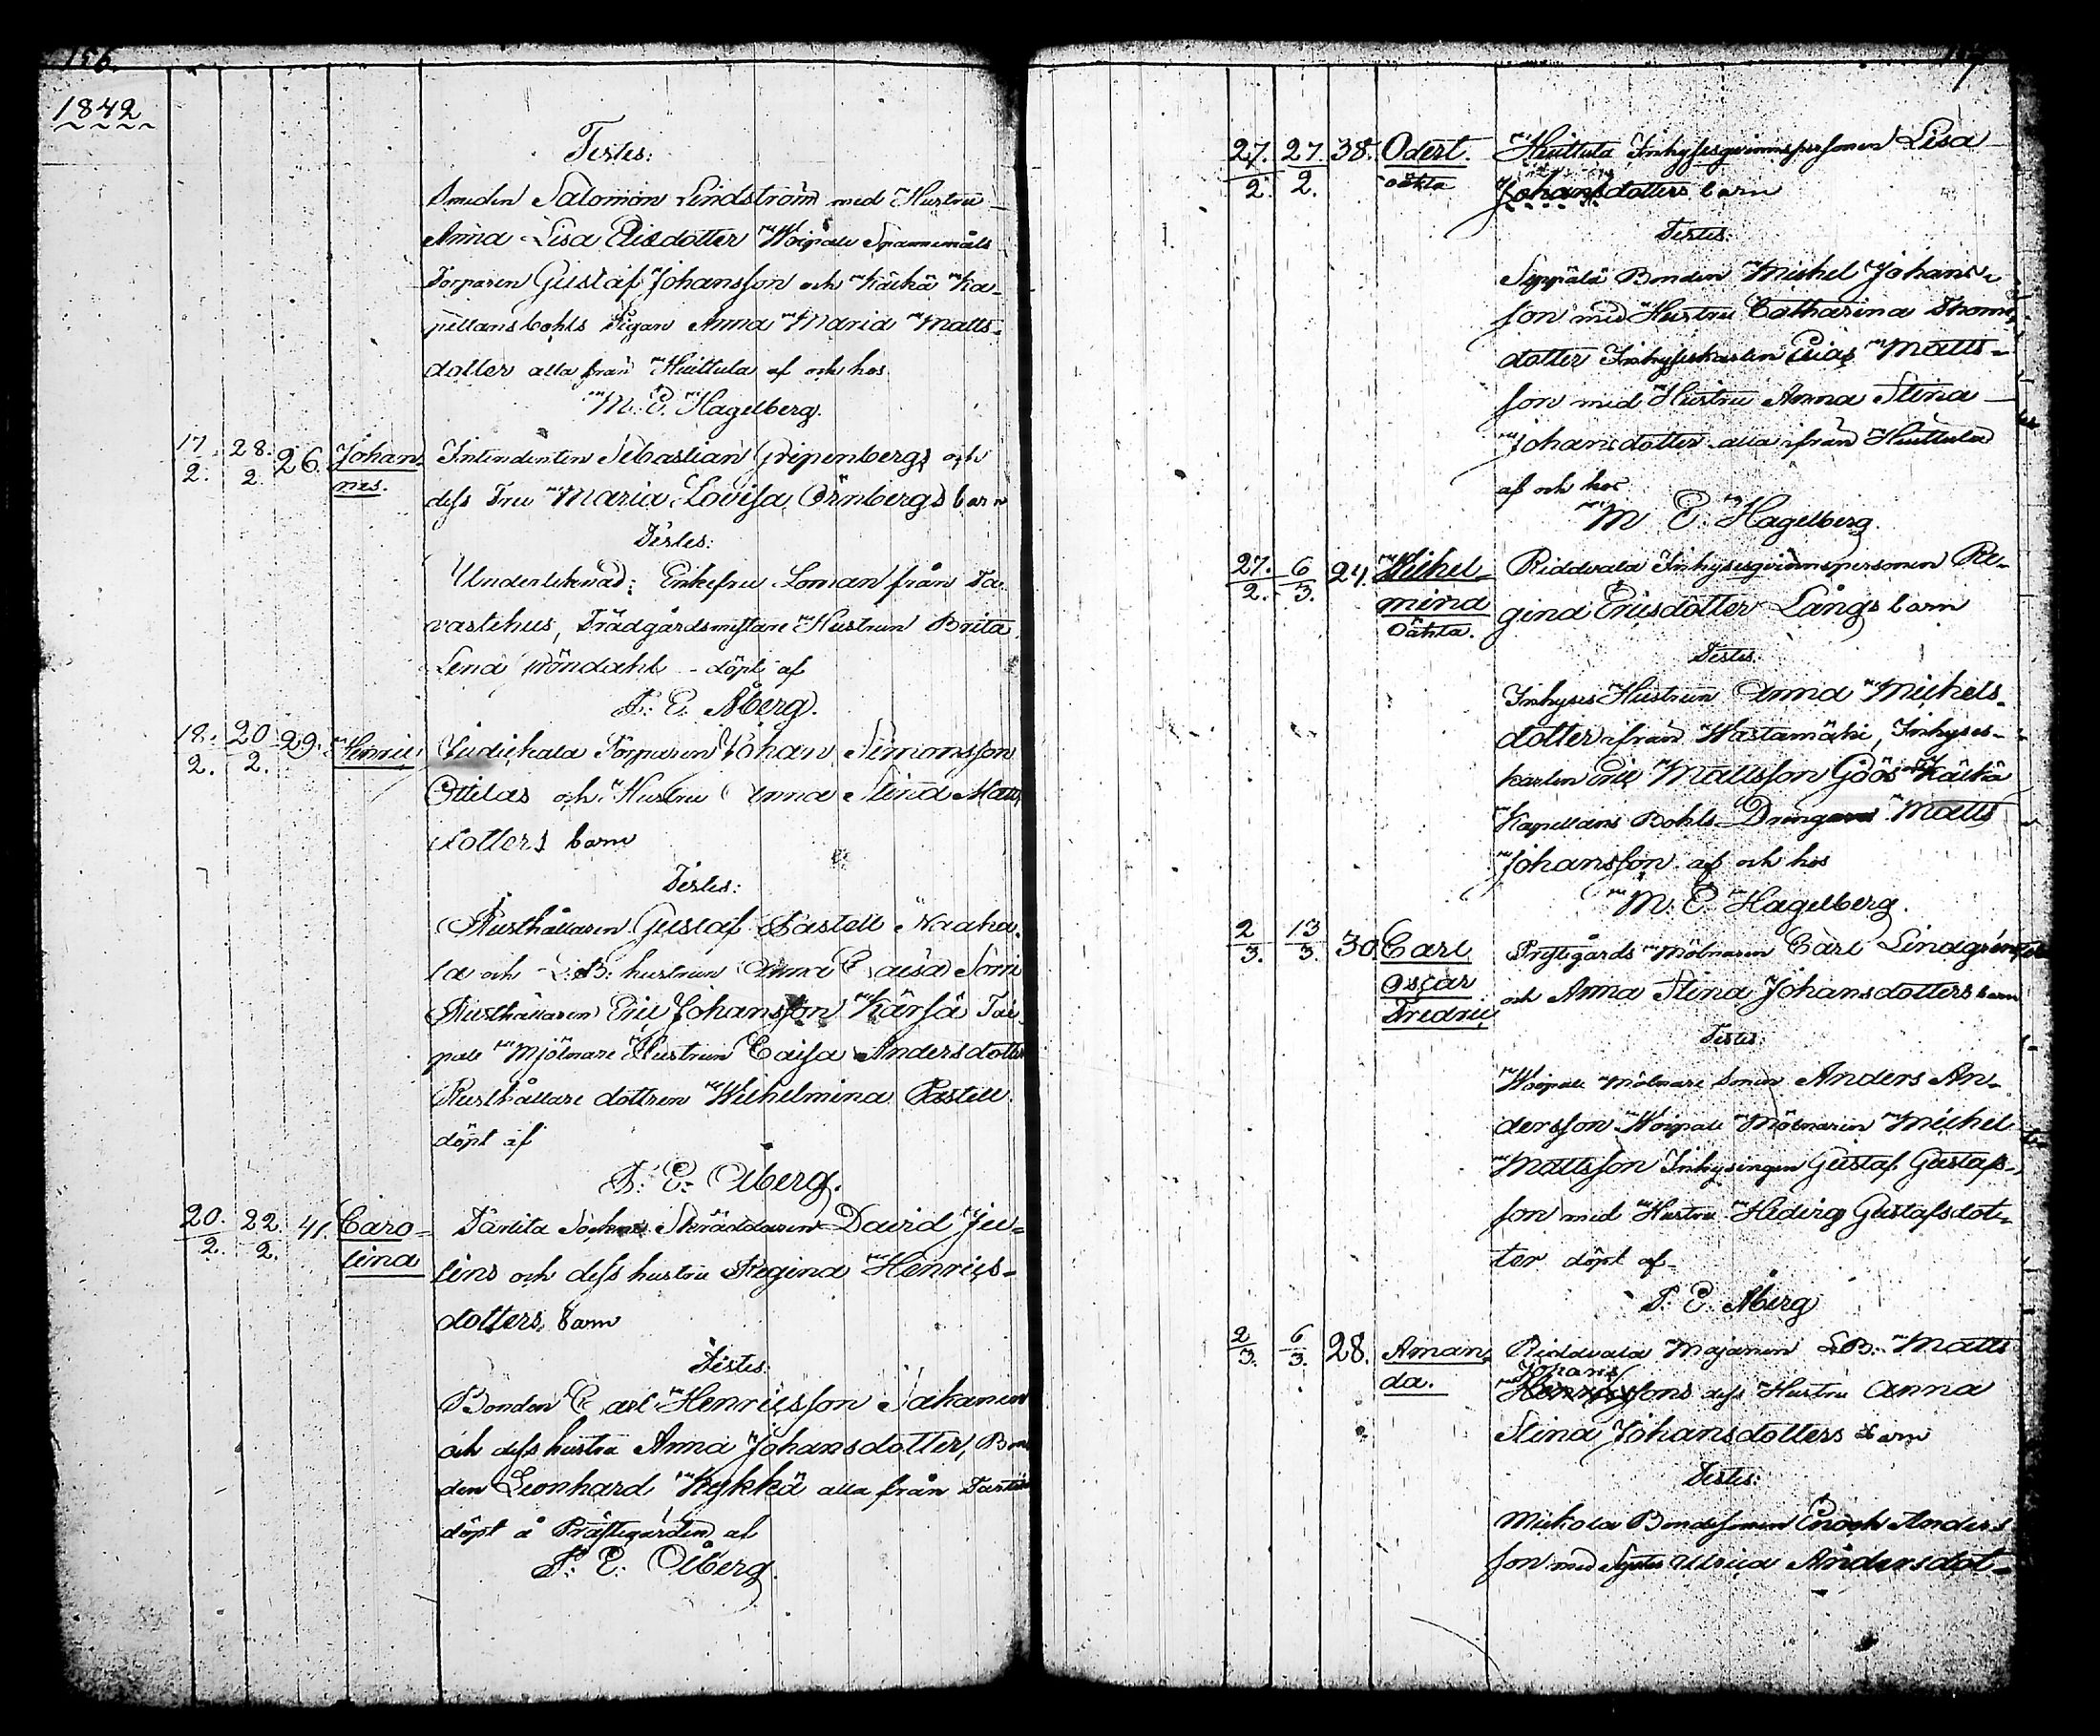 156.
1842
Testes:
Smeden Salomon Lindström med Hustru
Anna Lisa Ericsdotter Woipale
Torparen Gustaf Johansson och Käikä Ka-
pellansbohls Pigan Anna Maria Matts-
dotter alla från Huittula af och hos
M. E. Hagelberg.
17/2. 28./2 26. Johan- Intendenten Sebastian Gripenbergs och
nes. dess Fru Maria Lovisa Örnbergs barn
Testes:
Undertecknad: Enkefru Loman från Ta-
vastehus, Trädgårdsmästare Hustrun Brita
Lena döpt af
F. E. Åberg.
18./2. 20/2. 29. Henric Judickala Torparen Johan Simonsson
Ottilas och Hustru Anna Stina Matts
dotters barn
Testes:
Rusthållaren Gustaf Pastell Naaha-
la och L.B. hustrun Anna Caisa
Rusthållaren Eric Johansson Kärsä Toi-
pale Mjölnare Hustrun Caisa Andersdotter
Rusthållare dottren Wilhelmina Pastell
döpt af
F. E. Åberg.
20./2. 22./2. 41. Caro- Tärlita Sockne Skräddaren David Ju-
lina lins och dess hustru Regina Henrics-
dotters barn
Testes:
Bonden Carl Henricsson Sakanen
och dess hustru Anna Johansdotter, Bon
den Leonhard Kykkä alla från
döpt å Prästegården af
F. E. Åberg.
27./2. 27/2. 38. Odert. Huittula Inhysesqvinnspersonen Lisa
oäkta Johansdotters barn
Testes:
Seppälä Bonden Michel Johans-
son med Hustru Catharina Thoms
dotter Inhyseskarlen Elias Matts-
son med Hustru Anna Stina
Johansdotter alla ifrån Huittula
af och hos
M E. Hagelberg.
27./2. 6/3. 24. Wilhel- Riddvala Inhysesqvinnspersonen Re-
mina gina Ericsdotter Långs barn
Oäkta.
Testes:
Inhyses Hustrun Anna Michels-
dotter ifrån Wastamäki, Inhyses-
karlen Eric Mattsson Göös Käikä
Kapellans Bohls Drengen Matts
Johansson af och hos
M. E. Hagelberg.
2/3. 13/3. 30. Carl Prestgårds Mölnaren Carl Lindgren
Oscar och Anna Stina Johansdotters barn
Fredric
Testes:
Woipale Mölnare Sonen Anders An-
dersson Woipale Mölnaren Michel
Mattsson Inhysingen Gustaf Gustafs-
son med Hustru Hedvig Gustafsdot-
ter döpt af
F. E. Åberg
2/3. 6/3. 28. Aman- Riddvala Majanen L.B. Matts
da. Johans
Henricssons dess Hustru Anna
Stina Johansdotters barn
Testes:
Mickola Bondesonen Enoch Anders
son med Syster Ulrica Andersdot-